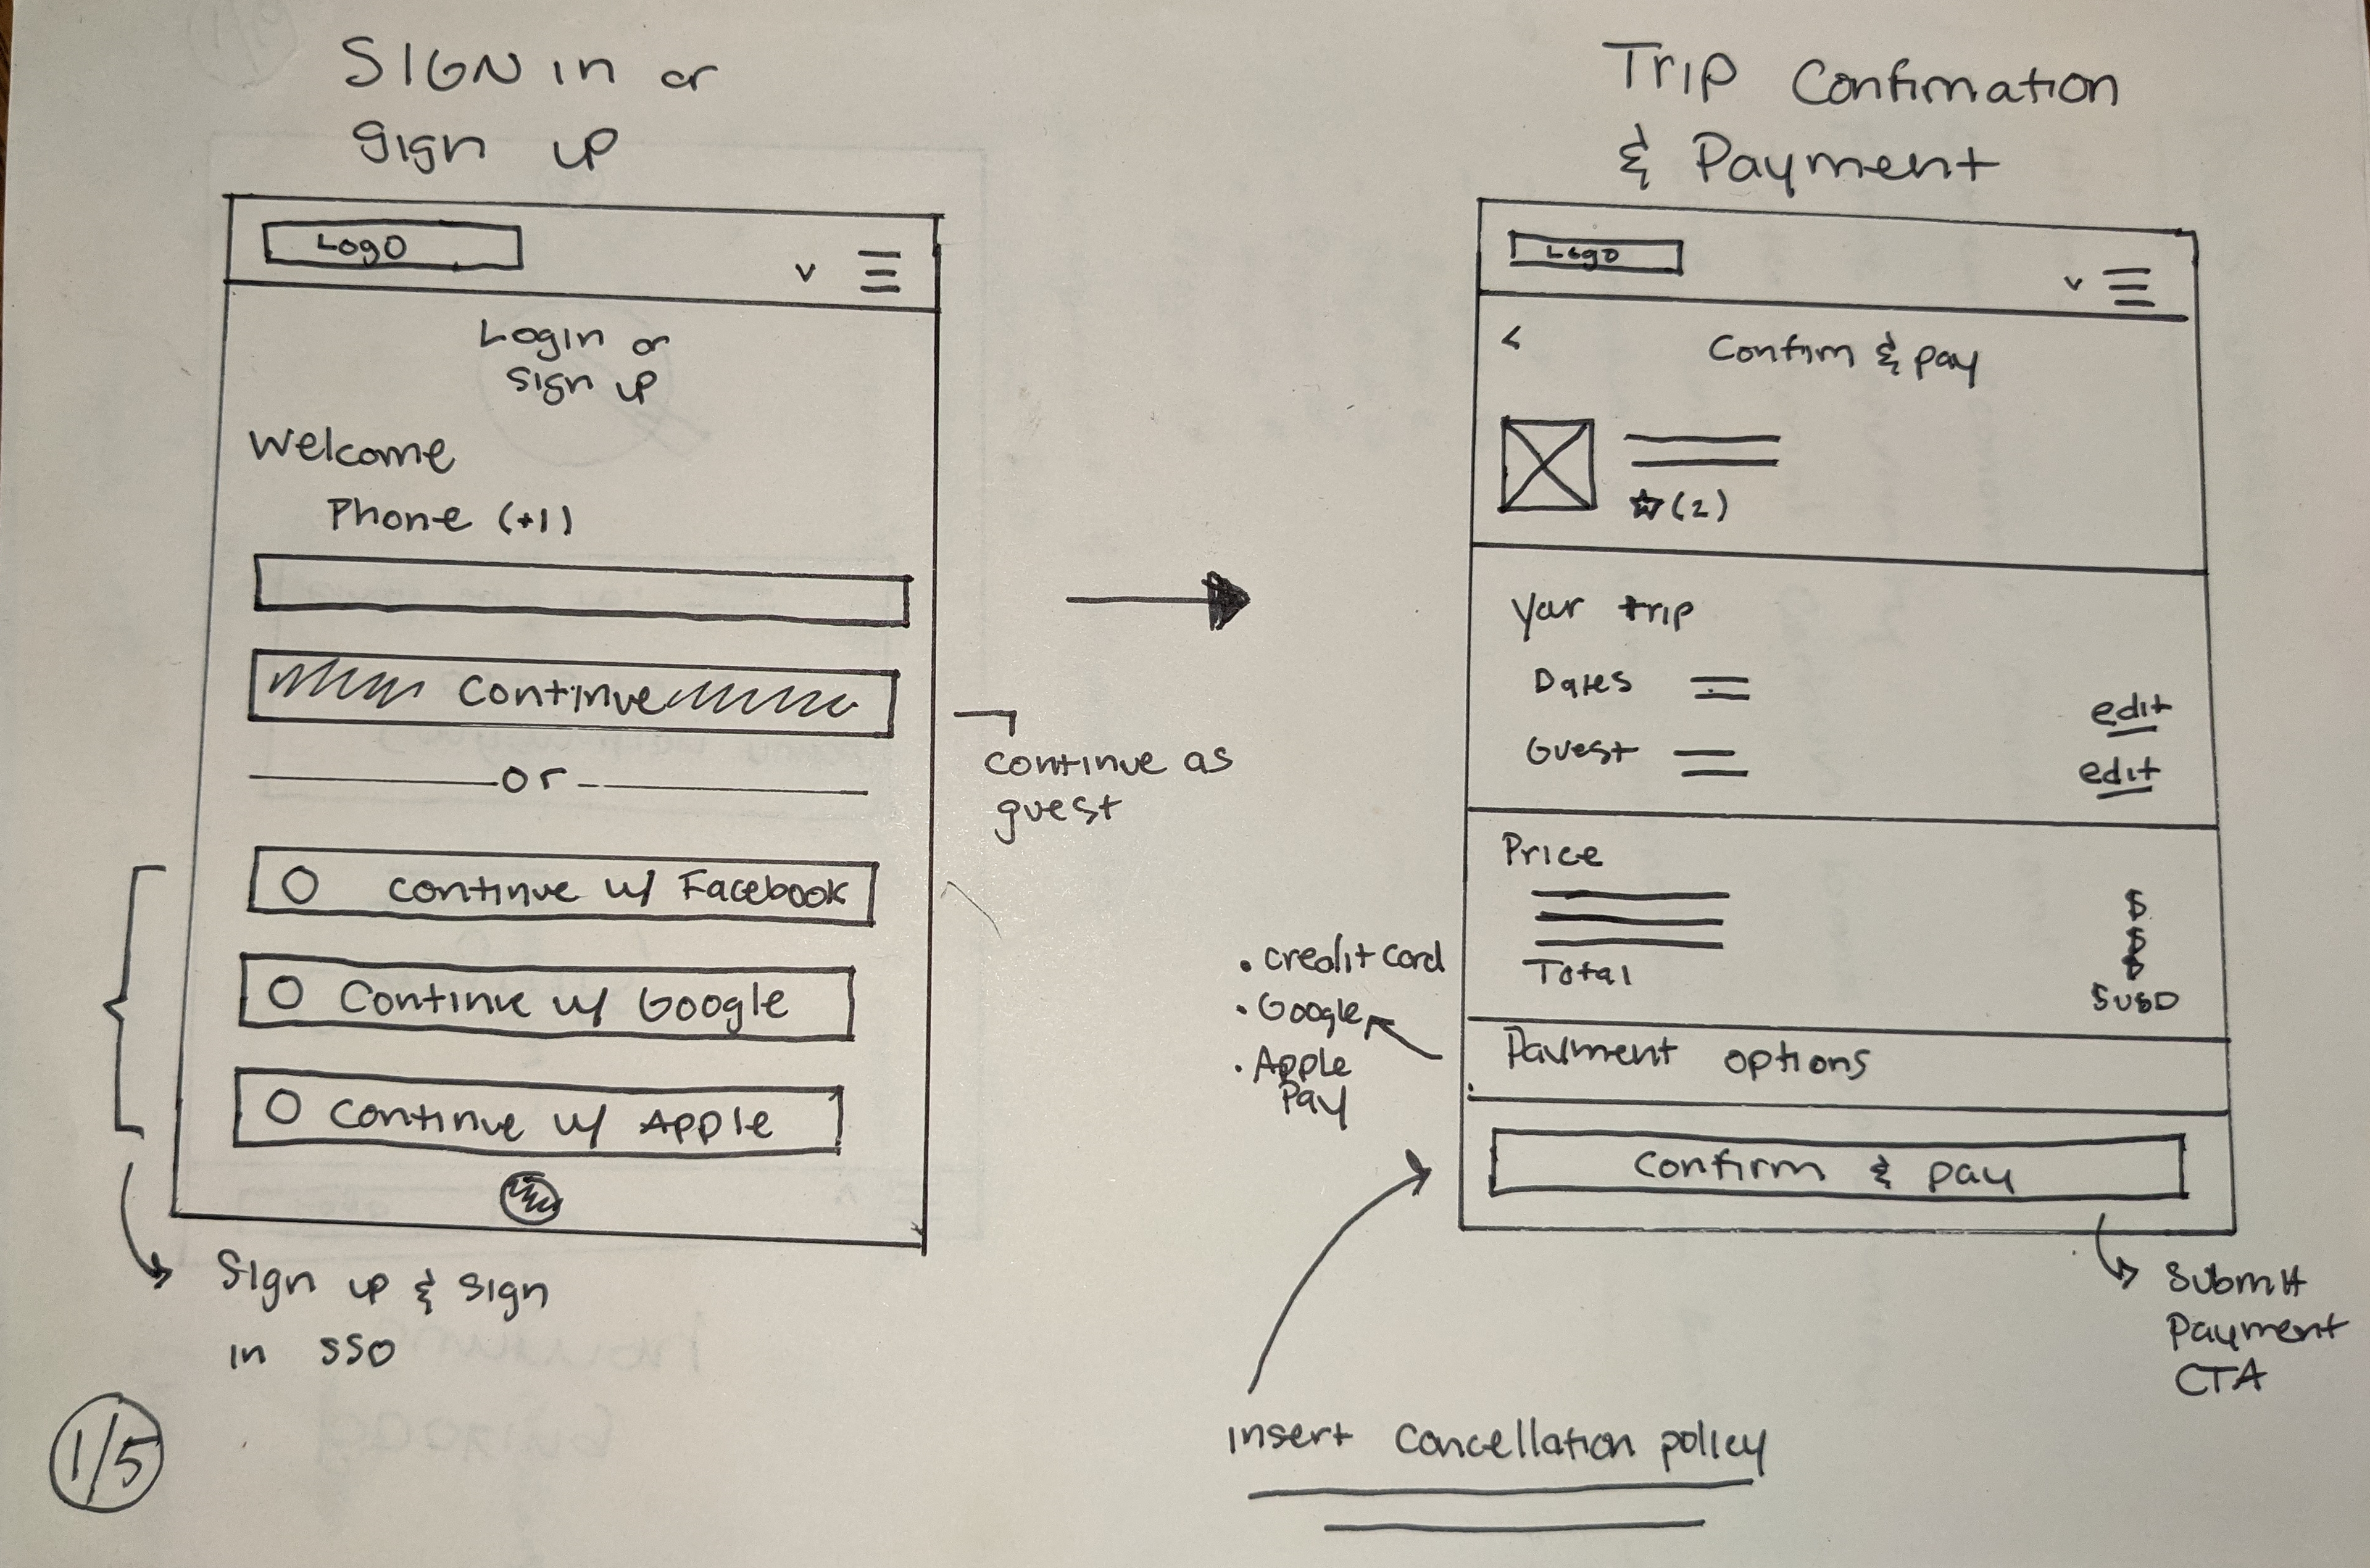 SIGN in or
sign up
Logo
Login or
sign up
Welcome
Phone (+1)
Continue
or
continue as
guest
continue w/ Facebook
Continue w/ Google
continue w/ Apple
Sign up & sign
in SSO
1/5
Trip Confirmation
& Payment
Logo
Confirm & pay
(2)
Your trip
Dates
edit
Guest
edit
Price
$
$
$
Total
$USD
• credit card
• Google
• Apple
Pay
Payment options
Confirm & pay
Submit
Payment
CTA
insert cancellation policy